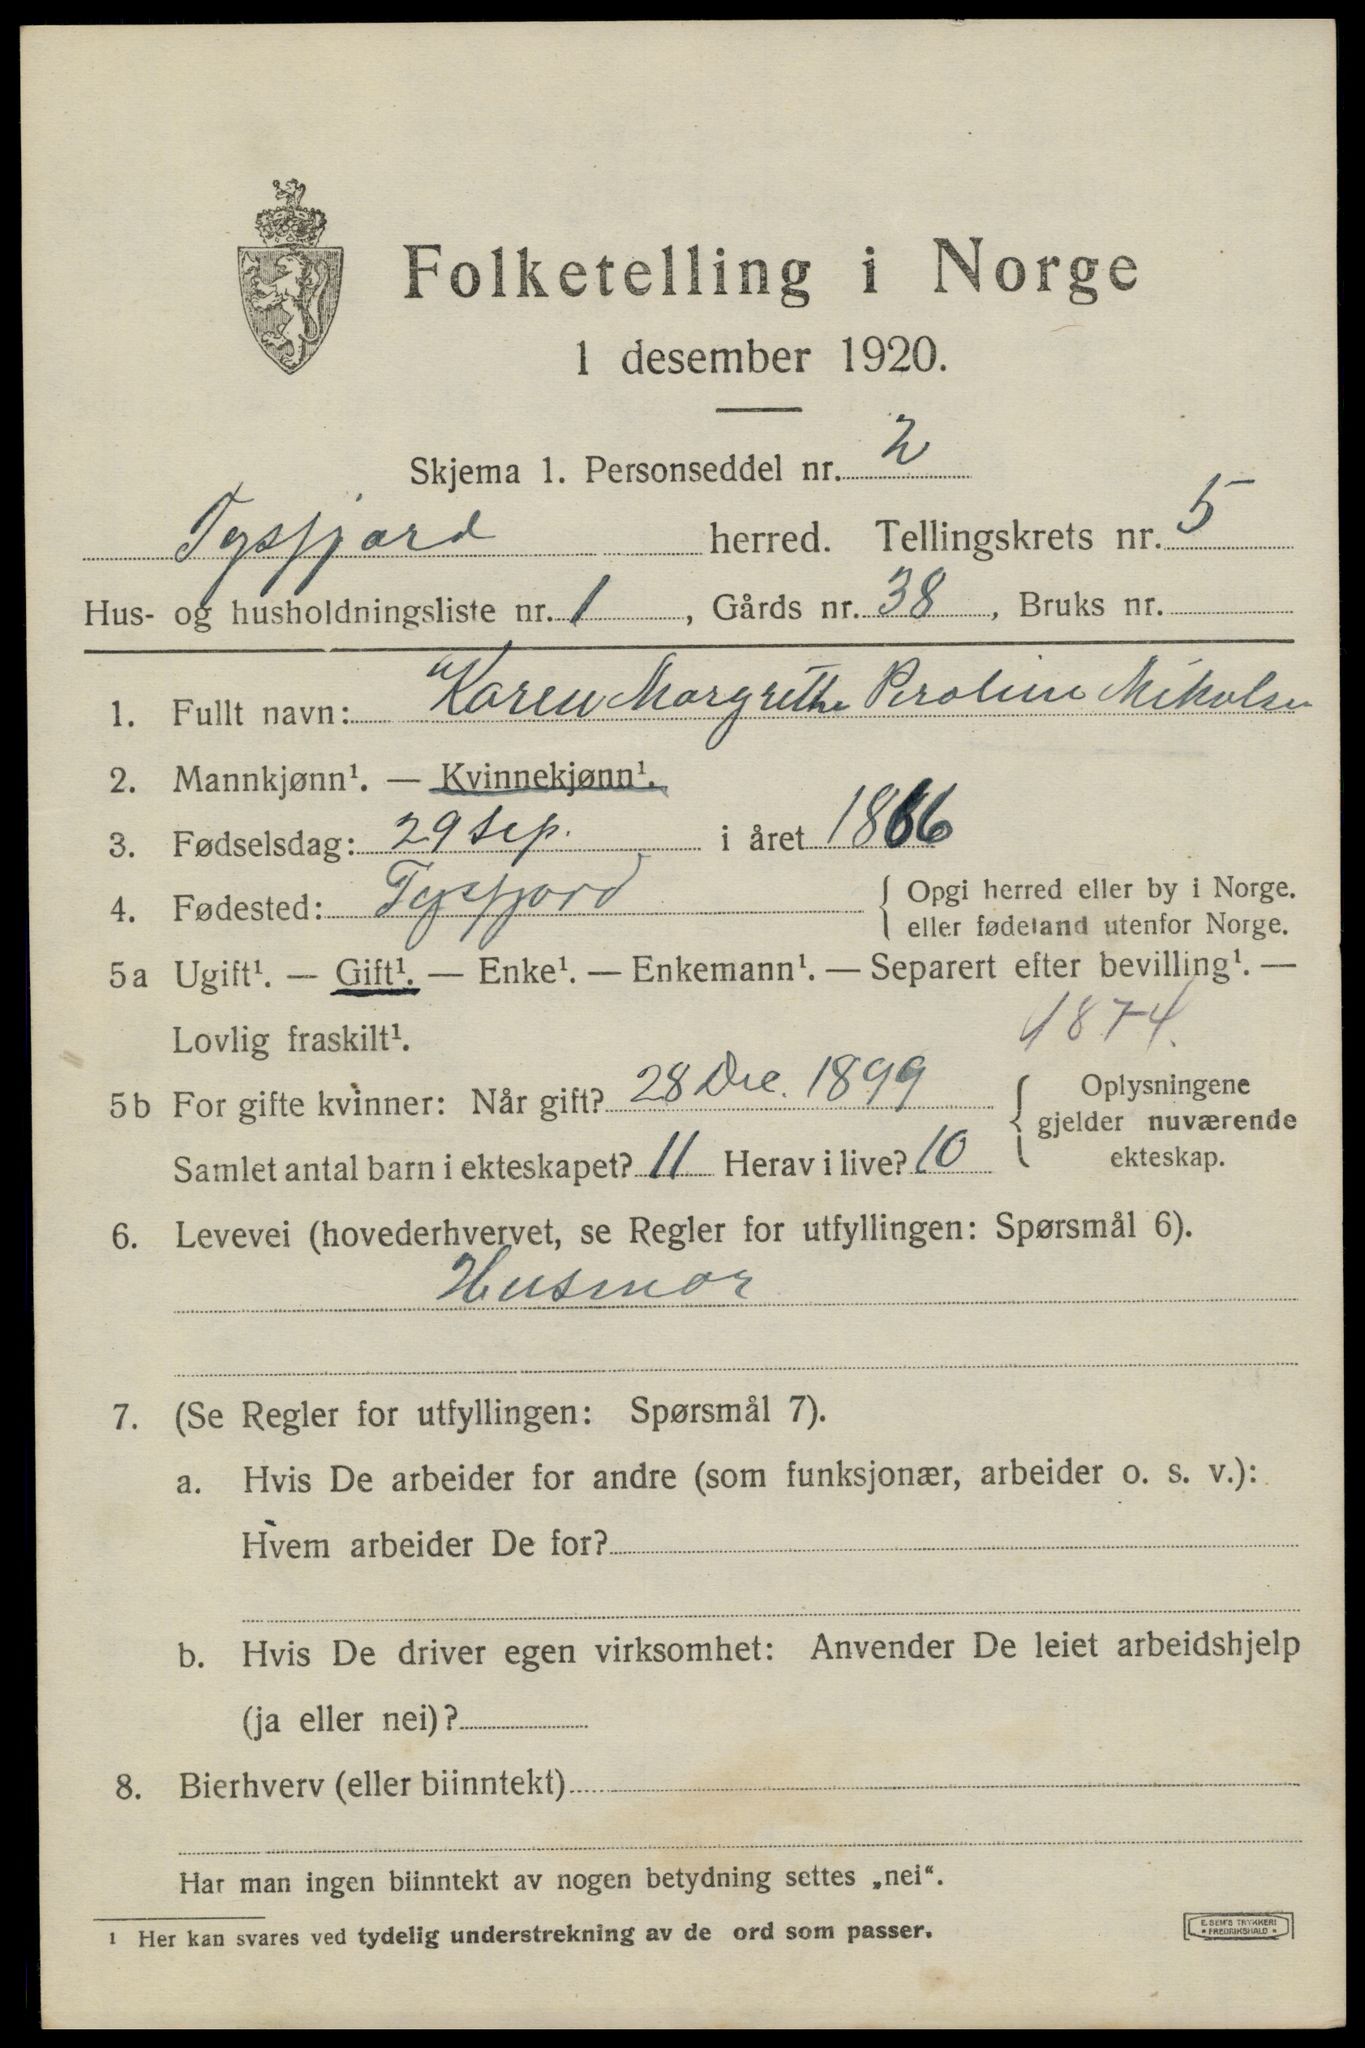 Folketelling i Norge
1 desember 1920.
Skjema 1. Personseddel nr. 2
Tysfjord herred. Tellingskrets nr. 5
Hus- og husholdningsliste nr. 1, Gårds nr. 38, Bruks nr.
1. Fullt navn: Karen Margrethe Peroline Mikalsen
2. Mannkjønn¹. — Kvinnekjønn¹.
3. Fødselsdag: 29 sep. i året 1866
4. Fødested: Tysfjord { Opgi herred eller by i Norge.
eller fødeland utenfor Norge.
5a Ugift¹. — Gift¹. — Enke¹. — Enkemann¹. — Separert efter bevilling¹. —
Lovlig fraskilt¹. 1874.
5b For gifte kvinner: Når gift? 28 Dec. 1899
Samlet antal barn i ekteskapet? 11 Herav i live? 10
{ Oplysningene
gjelder nuværende
ekteskap.
6. Levevei (hovederhvervet, se Regler for utfyllingen: Spørsmål 6).
Husmor
7. (Se Regler for utfyllingen: Spørsmål 7).
a. Hvis De arbeider for andre (som funksjonær, arbeider o. s. v.):
Hvem arbeider De for?
b. Hvis De driver egen virksomhet: Anvender De leiet arbeidshjelp
(ja eller nei)?
8. Bierhverv (eller biinntekt)
Har man ingen biinntekt av nogen betydning settes „nei“.
¹ Her kan svares ved tydelig understrekning av de ord som passer.
E. SEM'S TRYKKERI
* FREDRIKSHALD *